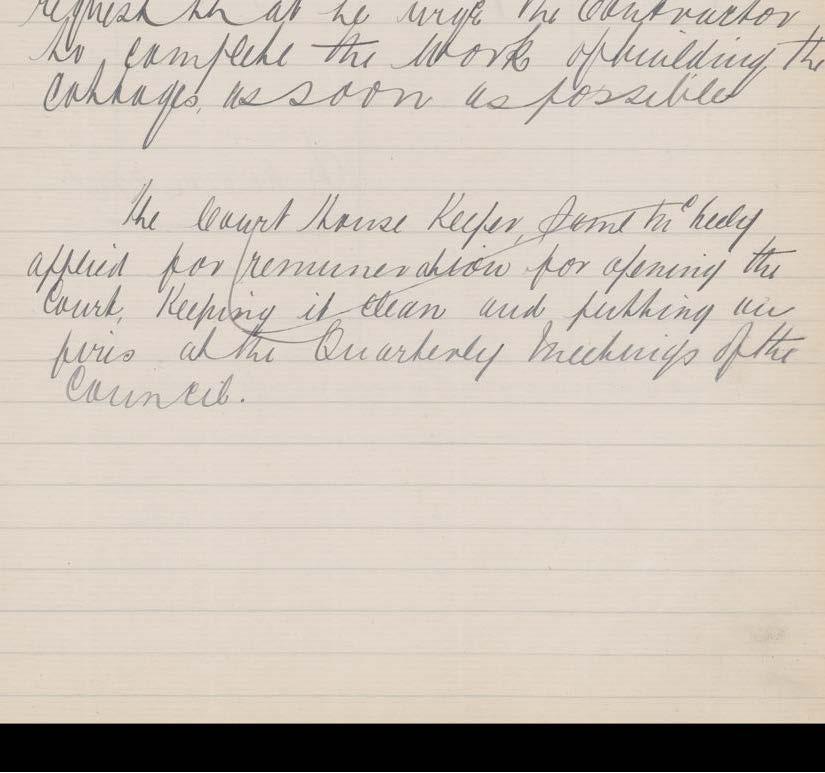 request that he urge the Contractor
to complete the Work of building the
Cottages, as soon as possible
The Court House Keeper,
applied for remuneration for opening the
Court, Keeping it clean and putting on
fires at the Quarterly Meetings of the
Council.